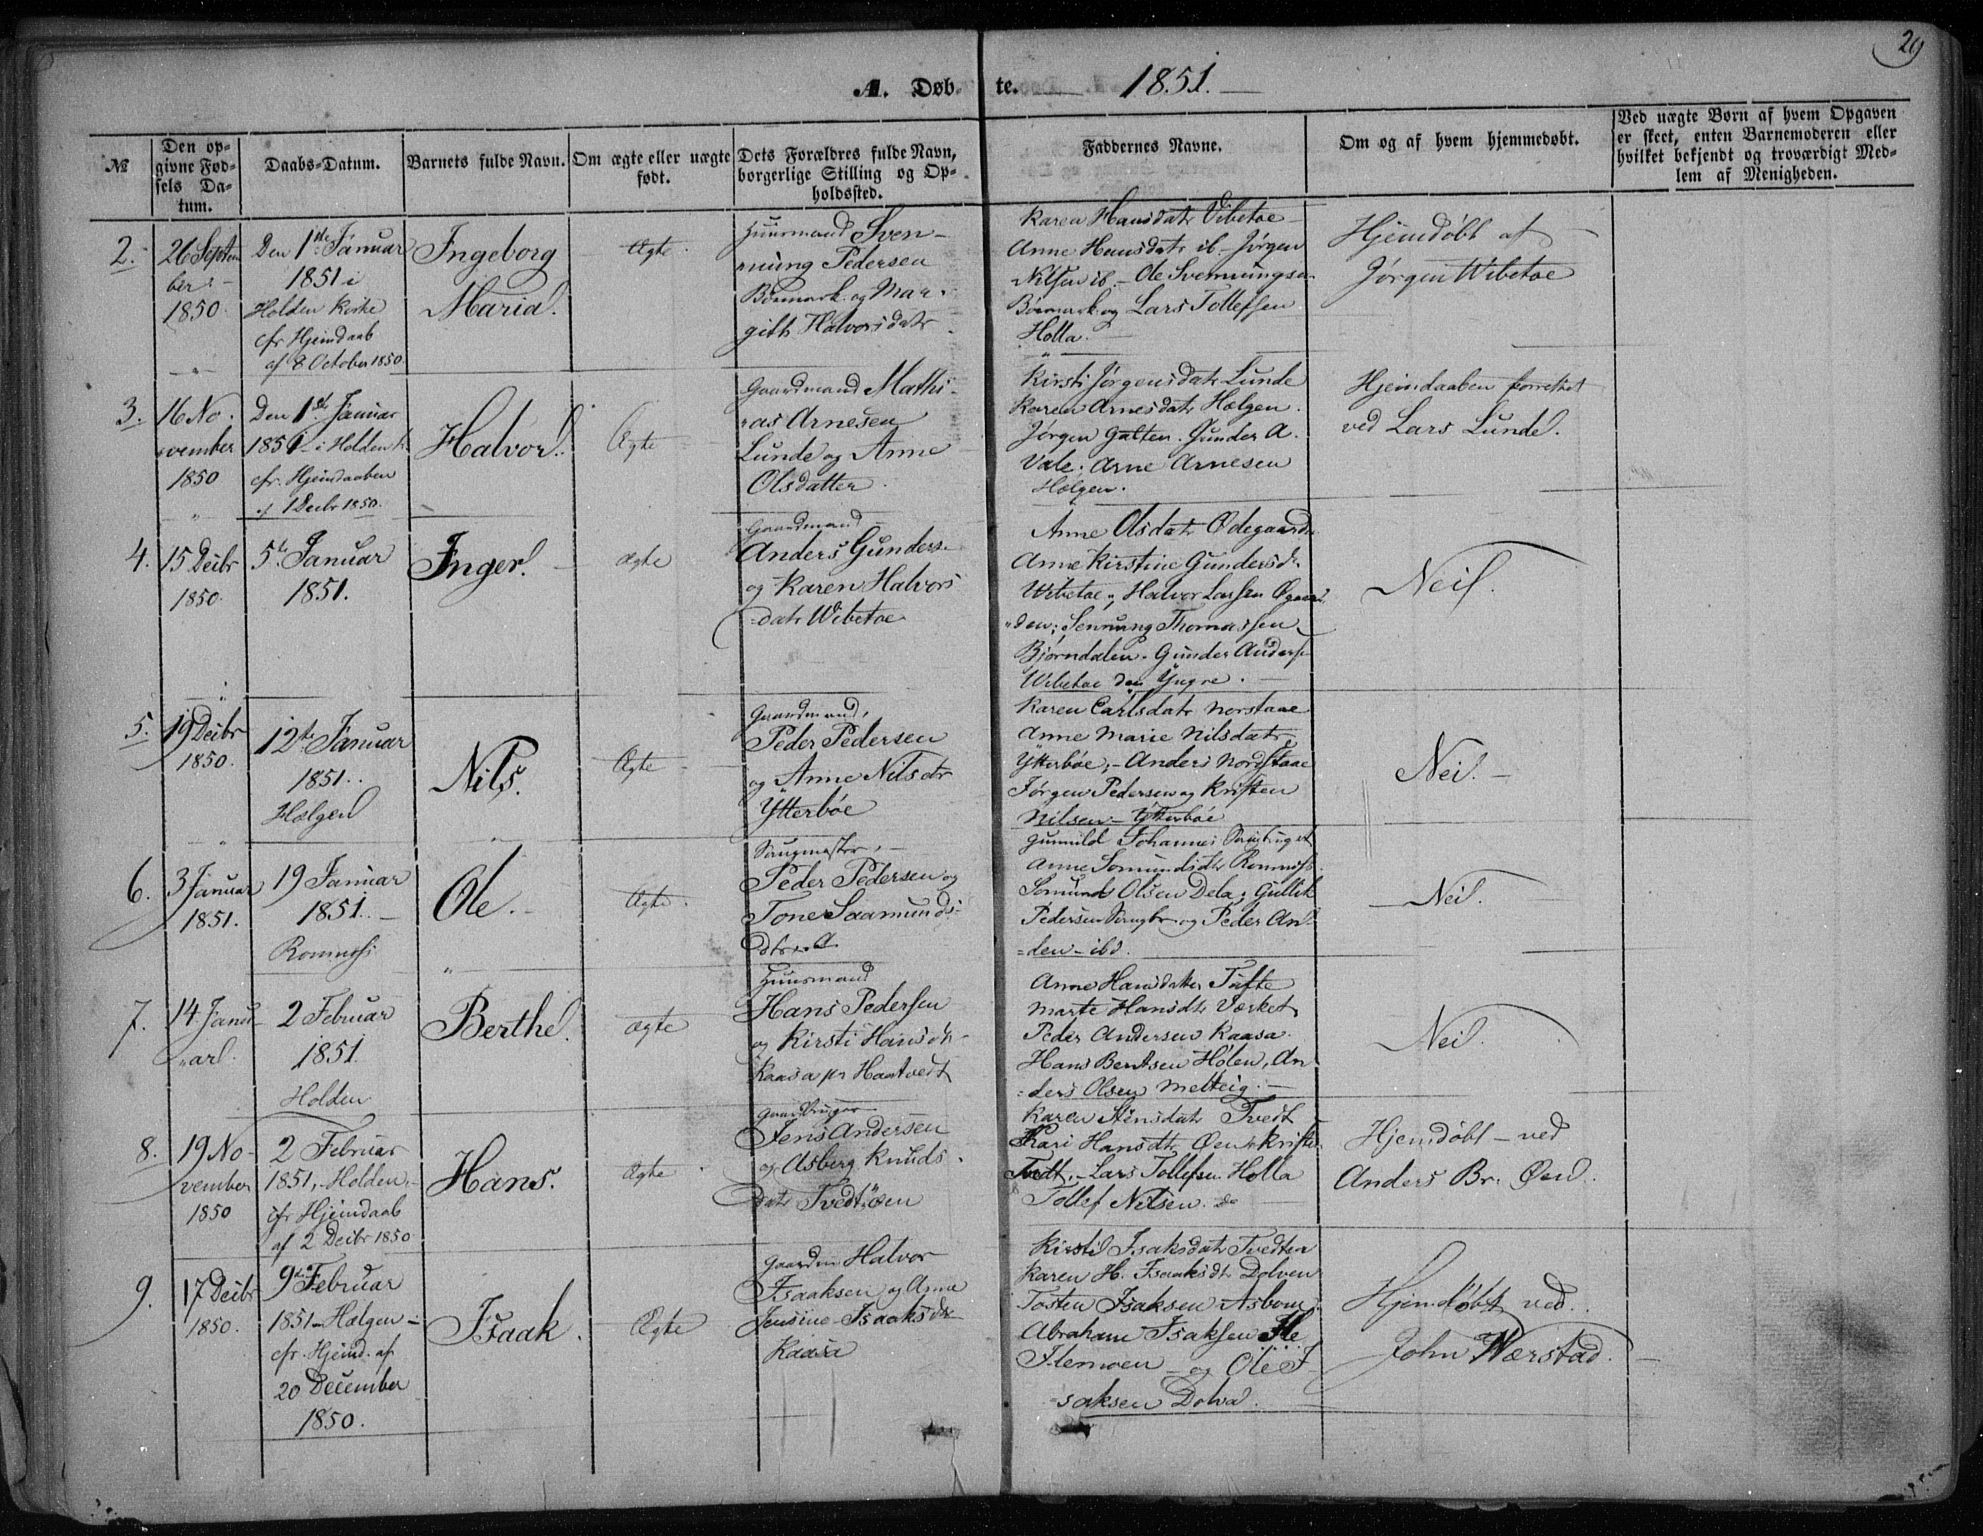 29
A. Døbte. 1851.
№
Den opgivne Fødsels Datum.
Daabs-Datum.
Barnets fulde Navn.
Om ægte eller uægte født.
Dets Forældres fulde Navn, borgerlige Stilling og Opholdssted.
Faddernes Navne.
Om og af hvem hjemmedøbt.
Ved uægte Børn af hvem Opgaven er skeet, enten Barnemoderen eller hvilket bekjendt og troværdigt Medlem af Menigheden.
2.
26 Septem
ber
1850.
Den 1ste Januar
1851 i
Holden Kirke
cfr Hjemdaab
af 8 October 1850.
Ingeborg
Maria.
Ægte
Huusmand Sven-
nung Pedersen
og Mar-
gith Halvorsdatr
Karen Hansdatr Vibetoe
Anne Hansdatr ib - Jørgen
Nilsen ib. - Ole Svennungsen
og Lars Tollefsen
Holla.
Hjemdøbt af
Jørgen Wibetoe
3.
16 No-
vember
1850
Den 1ste Januar
1851 - i Holden K
cfr. Hjemdaaben
af 1 Decbr 1850.
Halvor.
Ægte
Gaardmand Mathi-
as Arnesen
Lunde og Anne
Olsdatter.
Kirsti Jørgensdatr Lunde
Karen Arnesdatr Hælgen.
Jørgen Galten. Gunder A.
Vale. Arne Arnesen
Hælgen.
Hjemdaaben forrettet
ved Lars Lunde.
4.
15 Decbr
1850.
5te Januar
1851.
Inger.
Ægte
Gaardmand
Anders Gunders.
og Karen Halvors
datr Wibetoe
Anne Olsdatr Ødegaard
Anne Kirstine Gundersd.
Wibetoe, Halvor Larsen Øgaar
den; Sennung Thomassen
Bjørndalen. Gunder Anders
Wibetoe den Yngre.
Nei.
5.
19 Decbr
1850.
12te Januar
1851.
Hælgen
Nils.
Ægte
Gaardmand,
Peder Pedersen
og Anne Nilsdtr
Ytterbøe
Karen Carlsdatr Norstaae
Anne Marie Nilsdatr
Ytterbøe, - Anders Nordstaae
Jørgen Pedersen og Kristen
Nilsen - Ytterbøe
Nei.
6.
3 Januar
1851.
19 Januar
1851.
Romnæs
Ole.
Ægte
Saugmester,
Peder Pedersen og
Tone Saamunds
dtr
Gunnild Johannes
Anne Somundsdtr Romnæs
Somund Olsen Dela, Gullik
Pedersen Saugbr og Peder An-
den - ibd.
Nei.
7.
14 Janu
ar.
2 Februar
1851
Holden
Berthe.
Ægte
Huusmand
Hans Pedersen
og Kirsti Hansdtr
Kaasa pr Haatvedt
Anne Hansdatter Tufte
Marte Hansdtr Værket
Peder Andersen Kaasa
Hans Bentsen Holen, An
ders Olsen Melteig.
Nei.
8.
19 No-
vember
1850
2 Februar
1851, Holden,
cfr Hjemdaab
af 2 Decbr 1850
Hans.
Ægte
Gaardbruger
Jens Andersen
og Asberg Knuds
datr Tvedtøen
Karen Stensdatr Tvedt
Kari Hansdtr Øen
Tvedt, - Lars Tollefsen Holla
Tollef Nilsen. do
Hjemdøbt - ved
Anders Br. Øen.
9.
17 Decbr
1850.
9de Februar
1851 - Hælgen -
cfr. Hjemd. af
20 December
1850.
Isaak.
Ægte
Gaardm Halvor
Isaaksen og Anne
Jensine Isaaksdtr
Kaasa
Kirsti Isaksdatr Tvedten
Karen H. Isaaksdt Dolven
Tosten Isaksen Asbom
Abraham Isaksen
Flemoen - og Ole I
saksen Dolva.
Hjemdøbt ved
John Wærstad.